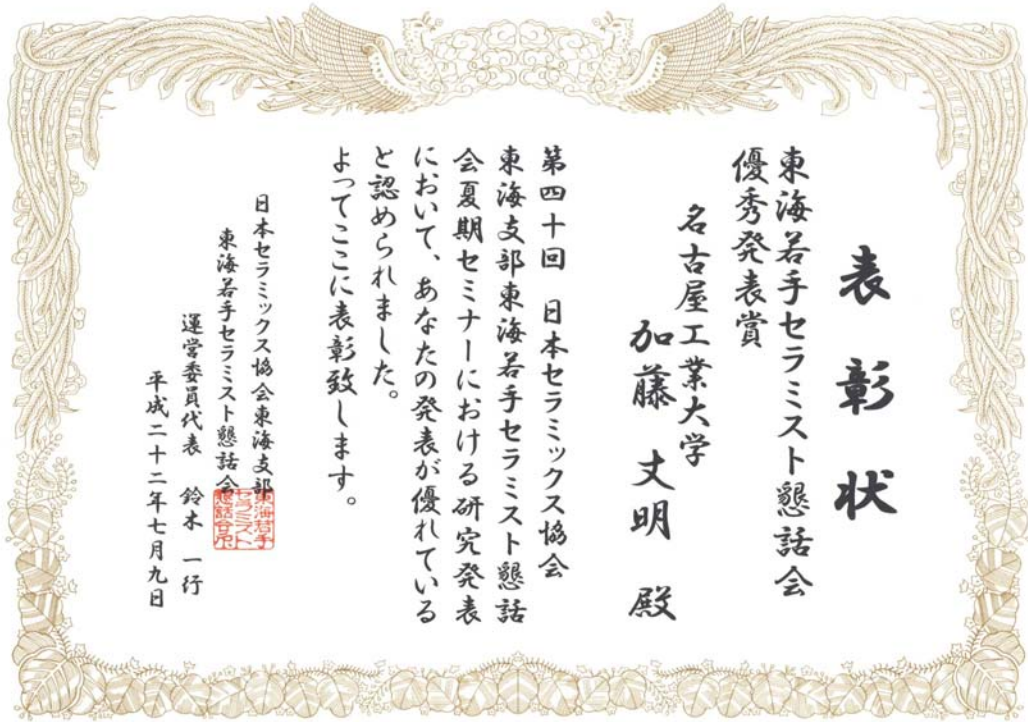 表彰状
東海若手セラミスト懇話会
優秀発表賞
名古屋工業大学
加藤 丈明 殿
第四十回 日本セラミックス協会
東海支部東海若手セラミスト懇話
会夏期セミナーにおける研究発表
において、あなたの発表が優れている
と認められました。
よってここに表彰致します。
日本セラミックス協会東海支部
東海若手セラミスト懇話会
運営委員代表 鈴木 一行
平成二十二年七月九日
東海若手
セラミスト
懇話会印